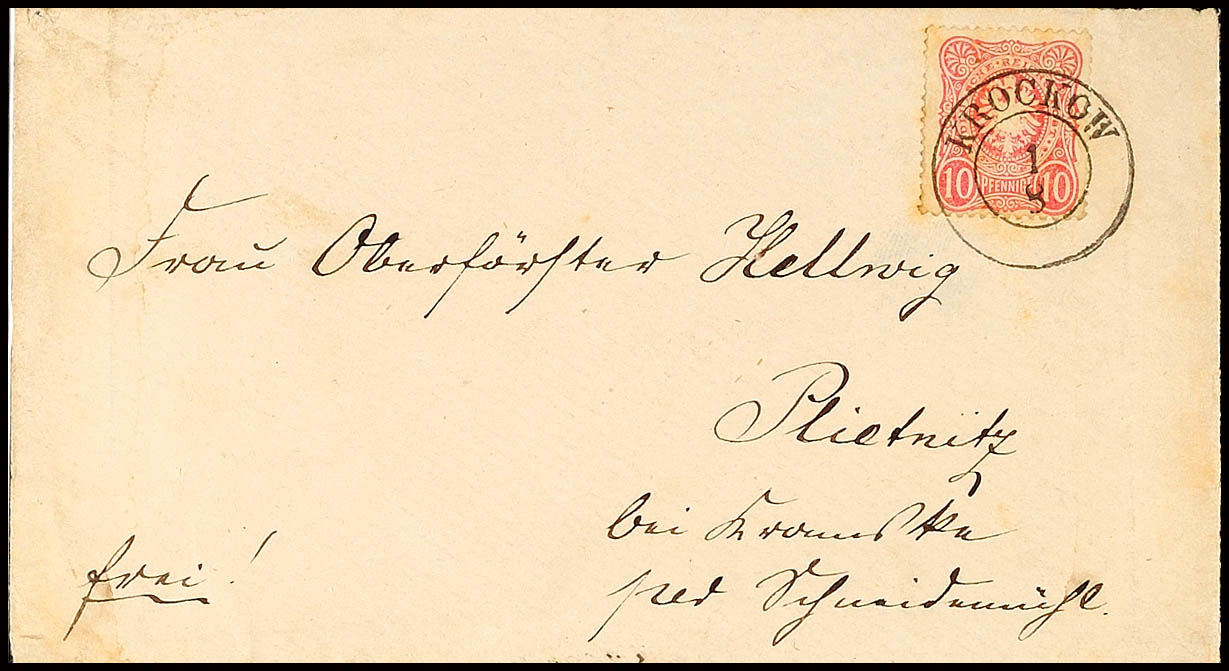 KROCKOW
1
8
10 PFENNIGE 10
Frau Oberförster Hellwig
Plietnitz
bei Kramske
per Schneidemühl.
frei!